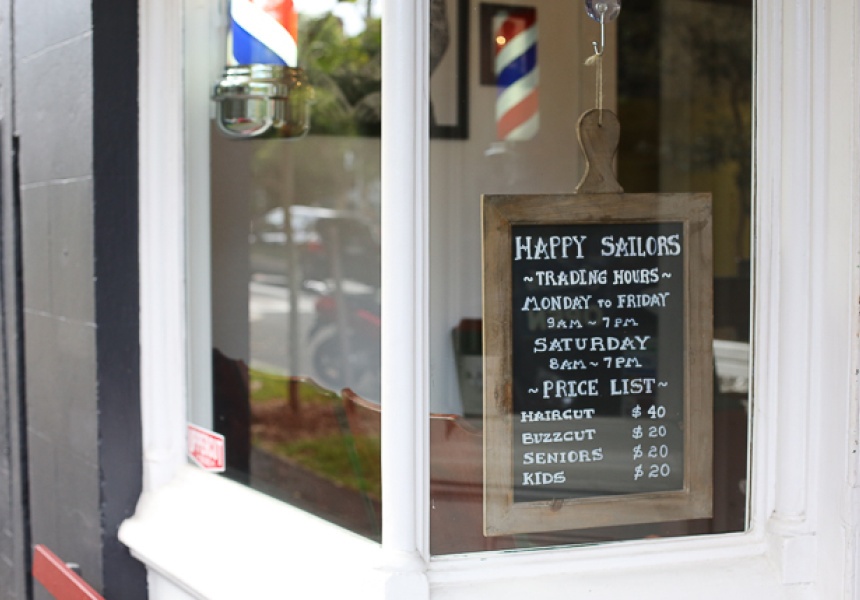 HAPPY SAILORS
~TRADING HOURS~
MONDAY to FRIDAY
9AM ~ 7PM
SATURDAY
8AM ~ 7PM
~PRICE LIST~
HAIRCUT $40
BUZZCUT $20
SENIORS $20
KIDS $20